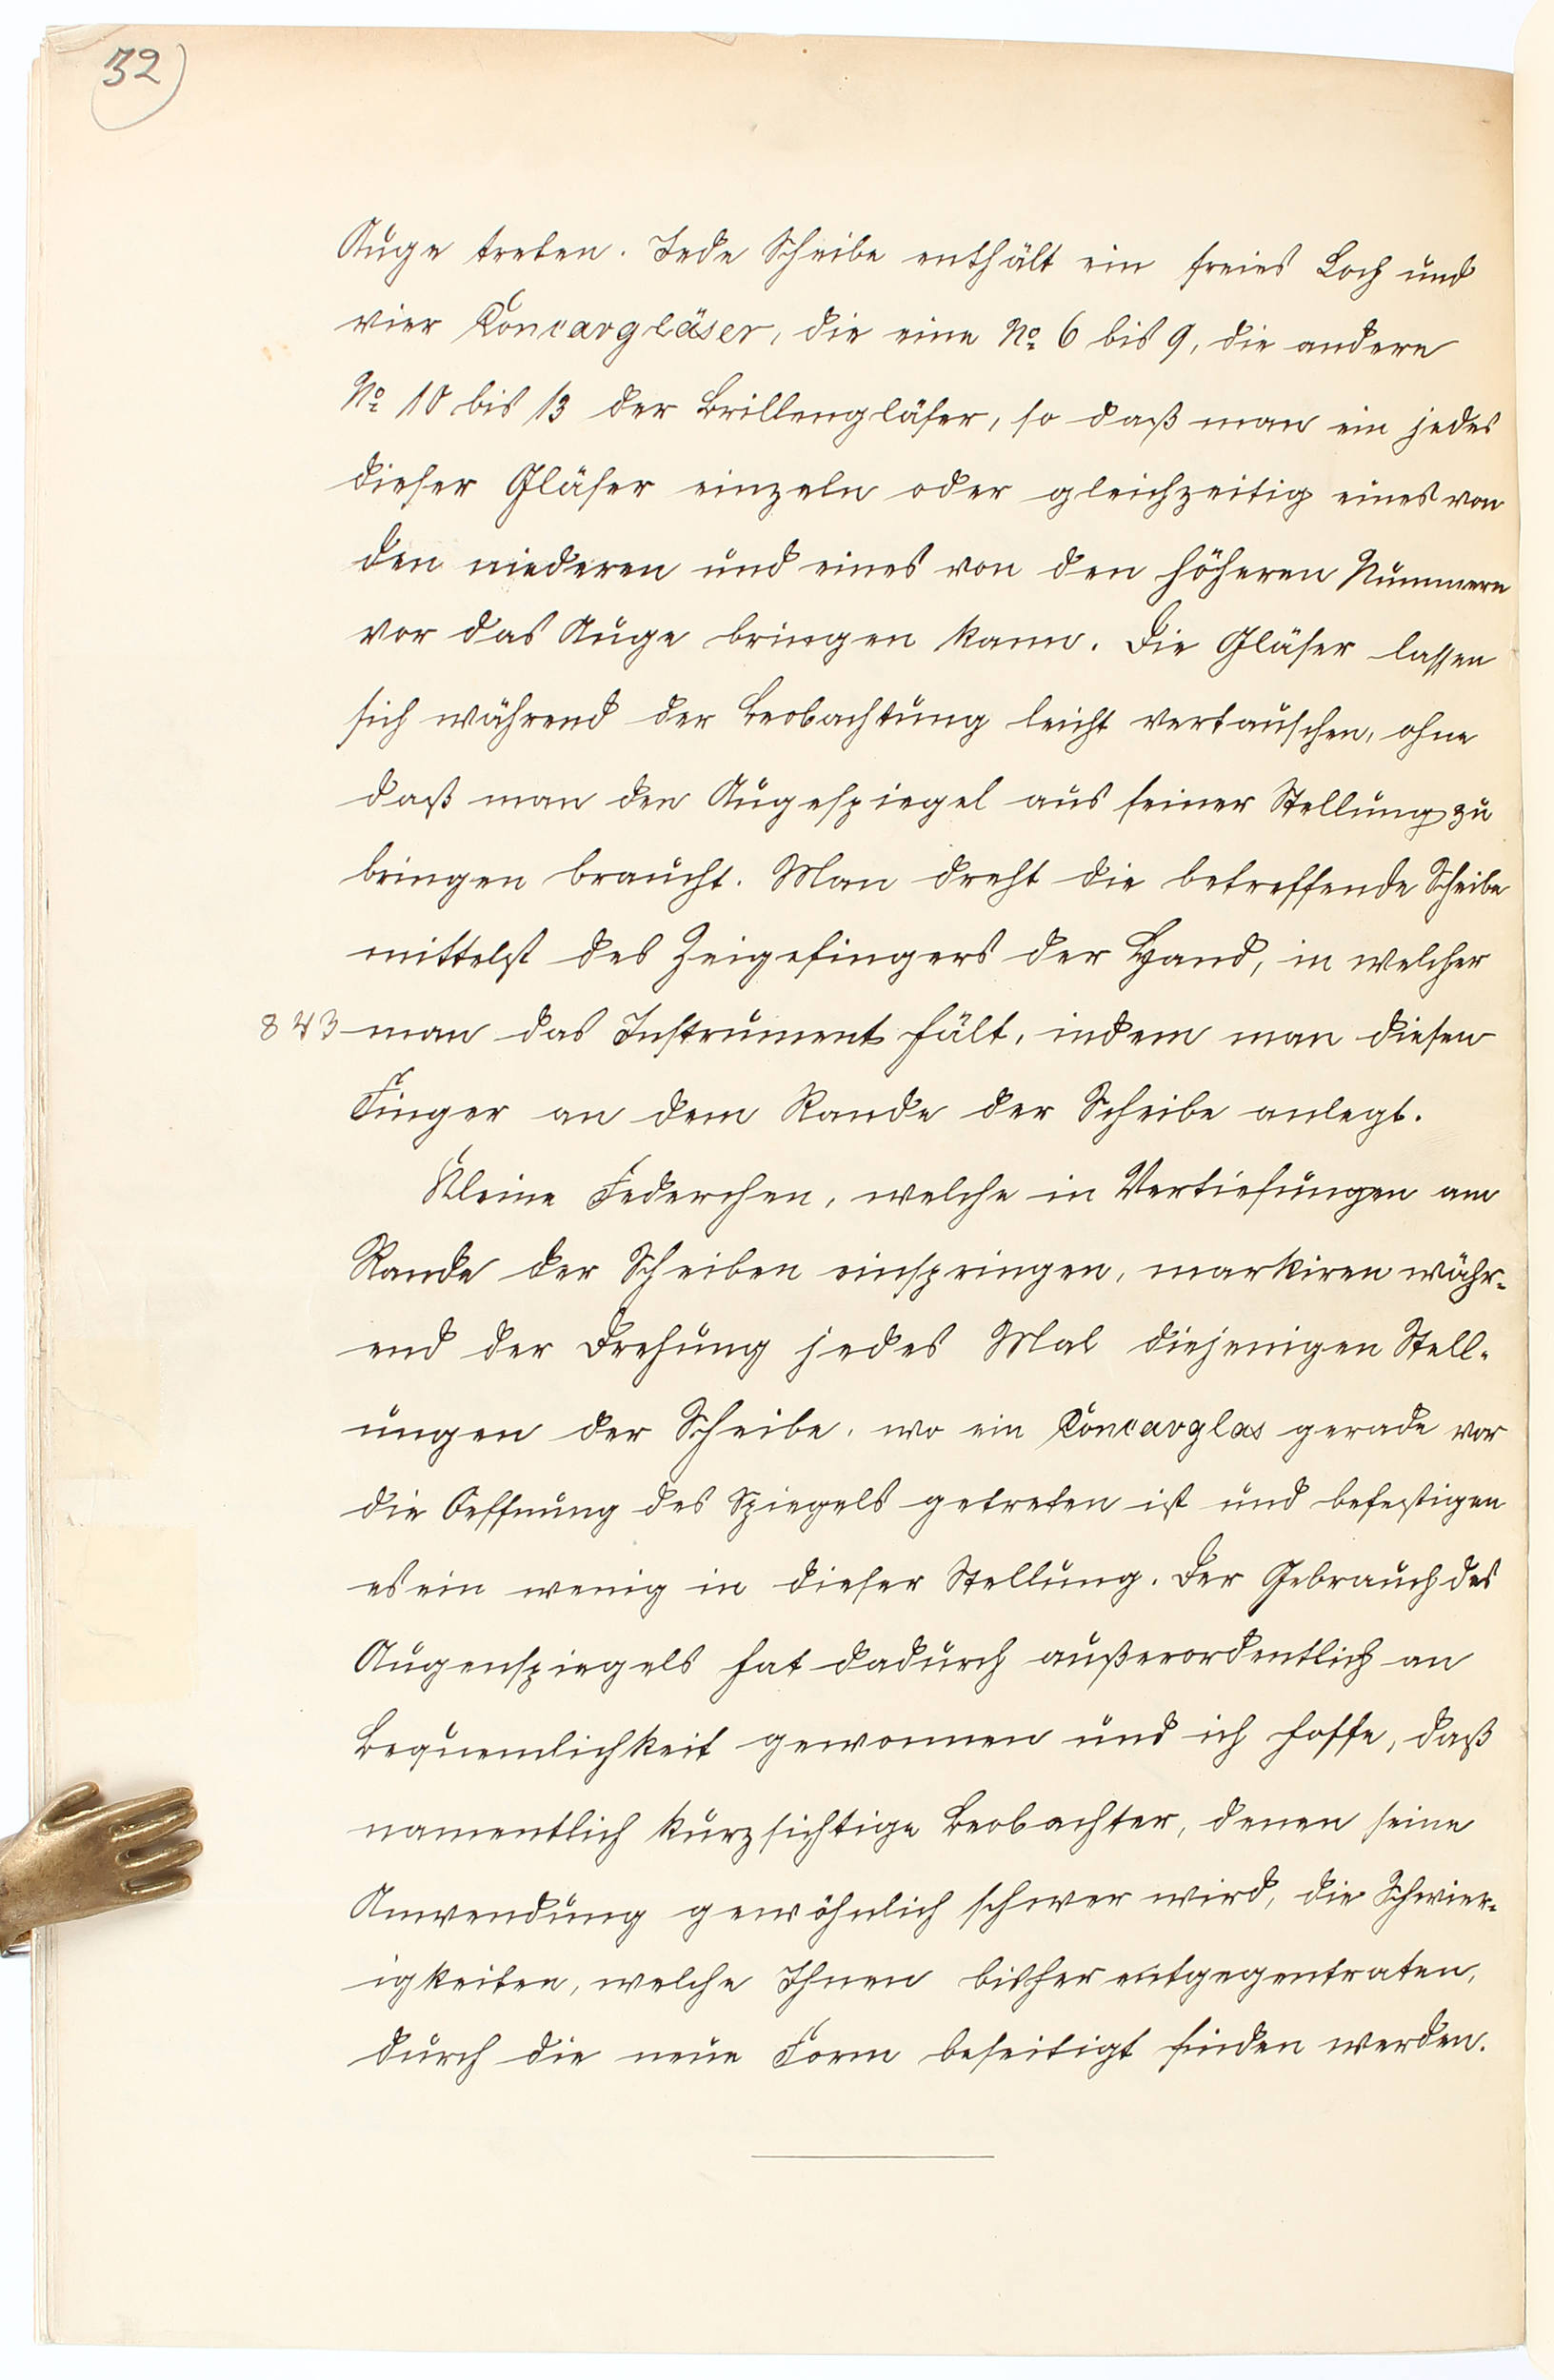 32
Auge treten. Jede Scheibe enthält ein freies Loch und
vier Concavgläser, die eine No. 6 bis 9, die andere
No. 10 bis 13 der Brillengläser, so daß man ein jedes
dieser Gläser einzeln oder gleichzeitig eines von
den niederen und eines von den höheren Nummern
vor das Auge bringen kann. Die Gläser lassen
sich während der Beobachtung leicht vertauschen, ohne
daß man den Augespiegel aus seiner Stellung zu
bringen braucht. Man dreht die betreffende Scheibe
mittelst des Zeigefingers der Hand, in welcher
843 man das Instrument hält, indem man diesen
Finger an dem Rande der Scheibe anlegt.
Kleine Federchen, welche in Vertiefungen am
Rande der Scheiben einspringen, markiren währ-
end der Drehung jedes Mal diejenigen Stell-
ungen der Scheibe, wo ein Concavglas gerade vor
die Oeffnung des Spiegels getreten ist und befestigen
es ein wenig in dieser Stellung. Der Gebrauch des
Augenspiegels hat dadurch außerordentlich an
Bequemlichkeit gewonnen und ich hoffe, daß
namentlich kurzsichtige Beobachter, denen seine
Anwendung gewöhnlich schwer wird, die Schwier-
igkeiten, welche Ihnen bisher entgegentraten,
durch die neue Form beseitigt finden werden.